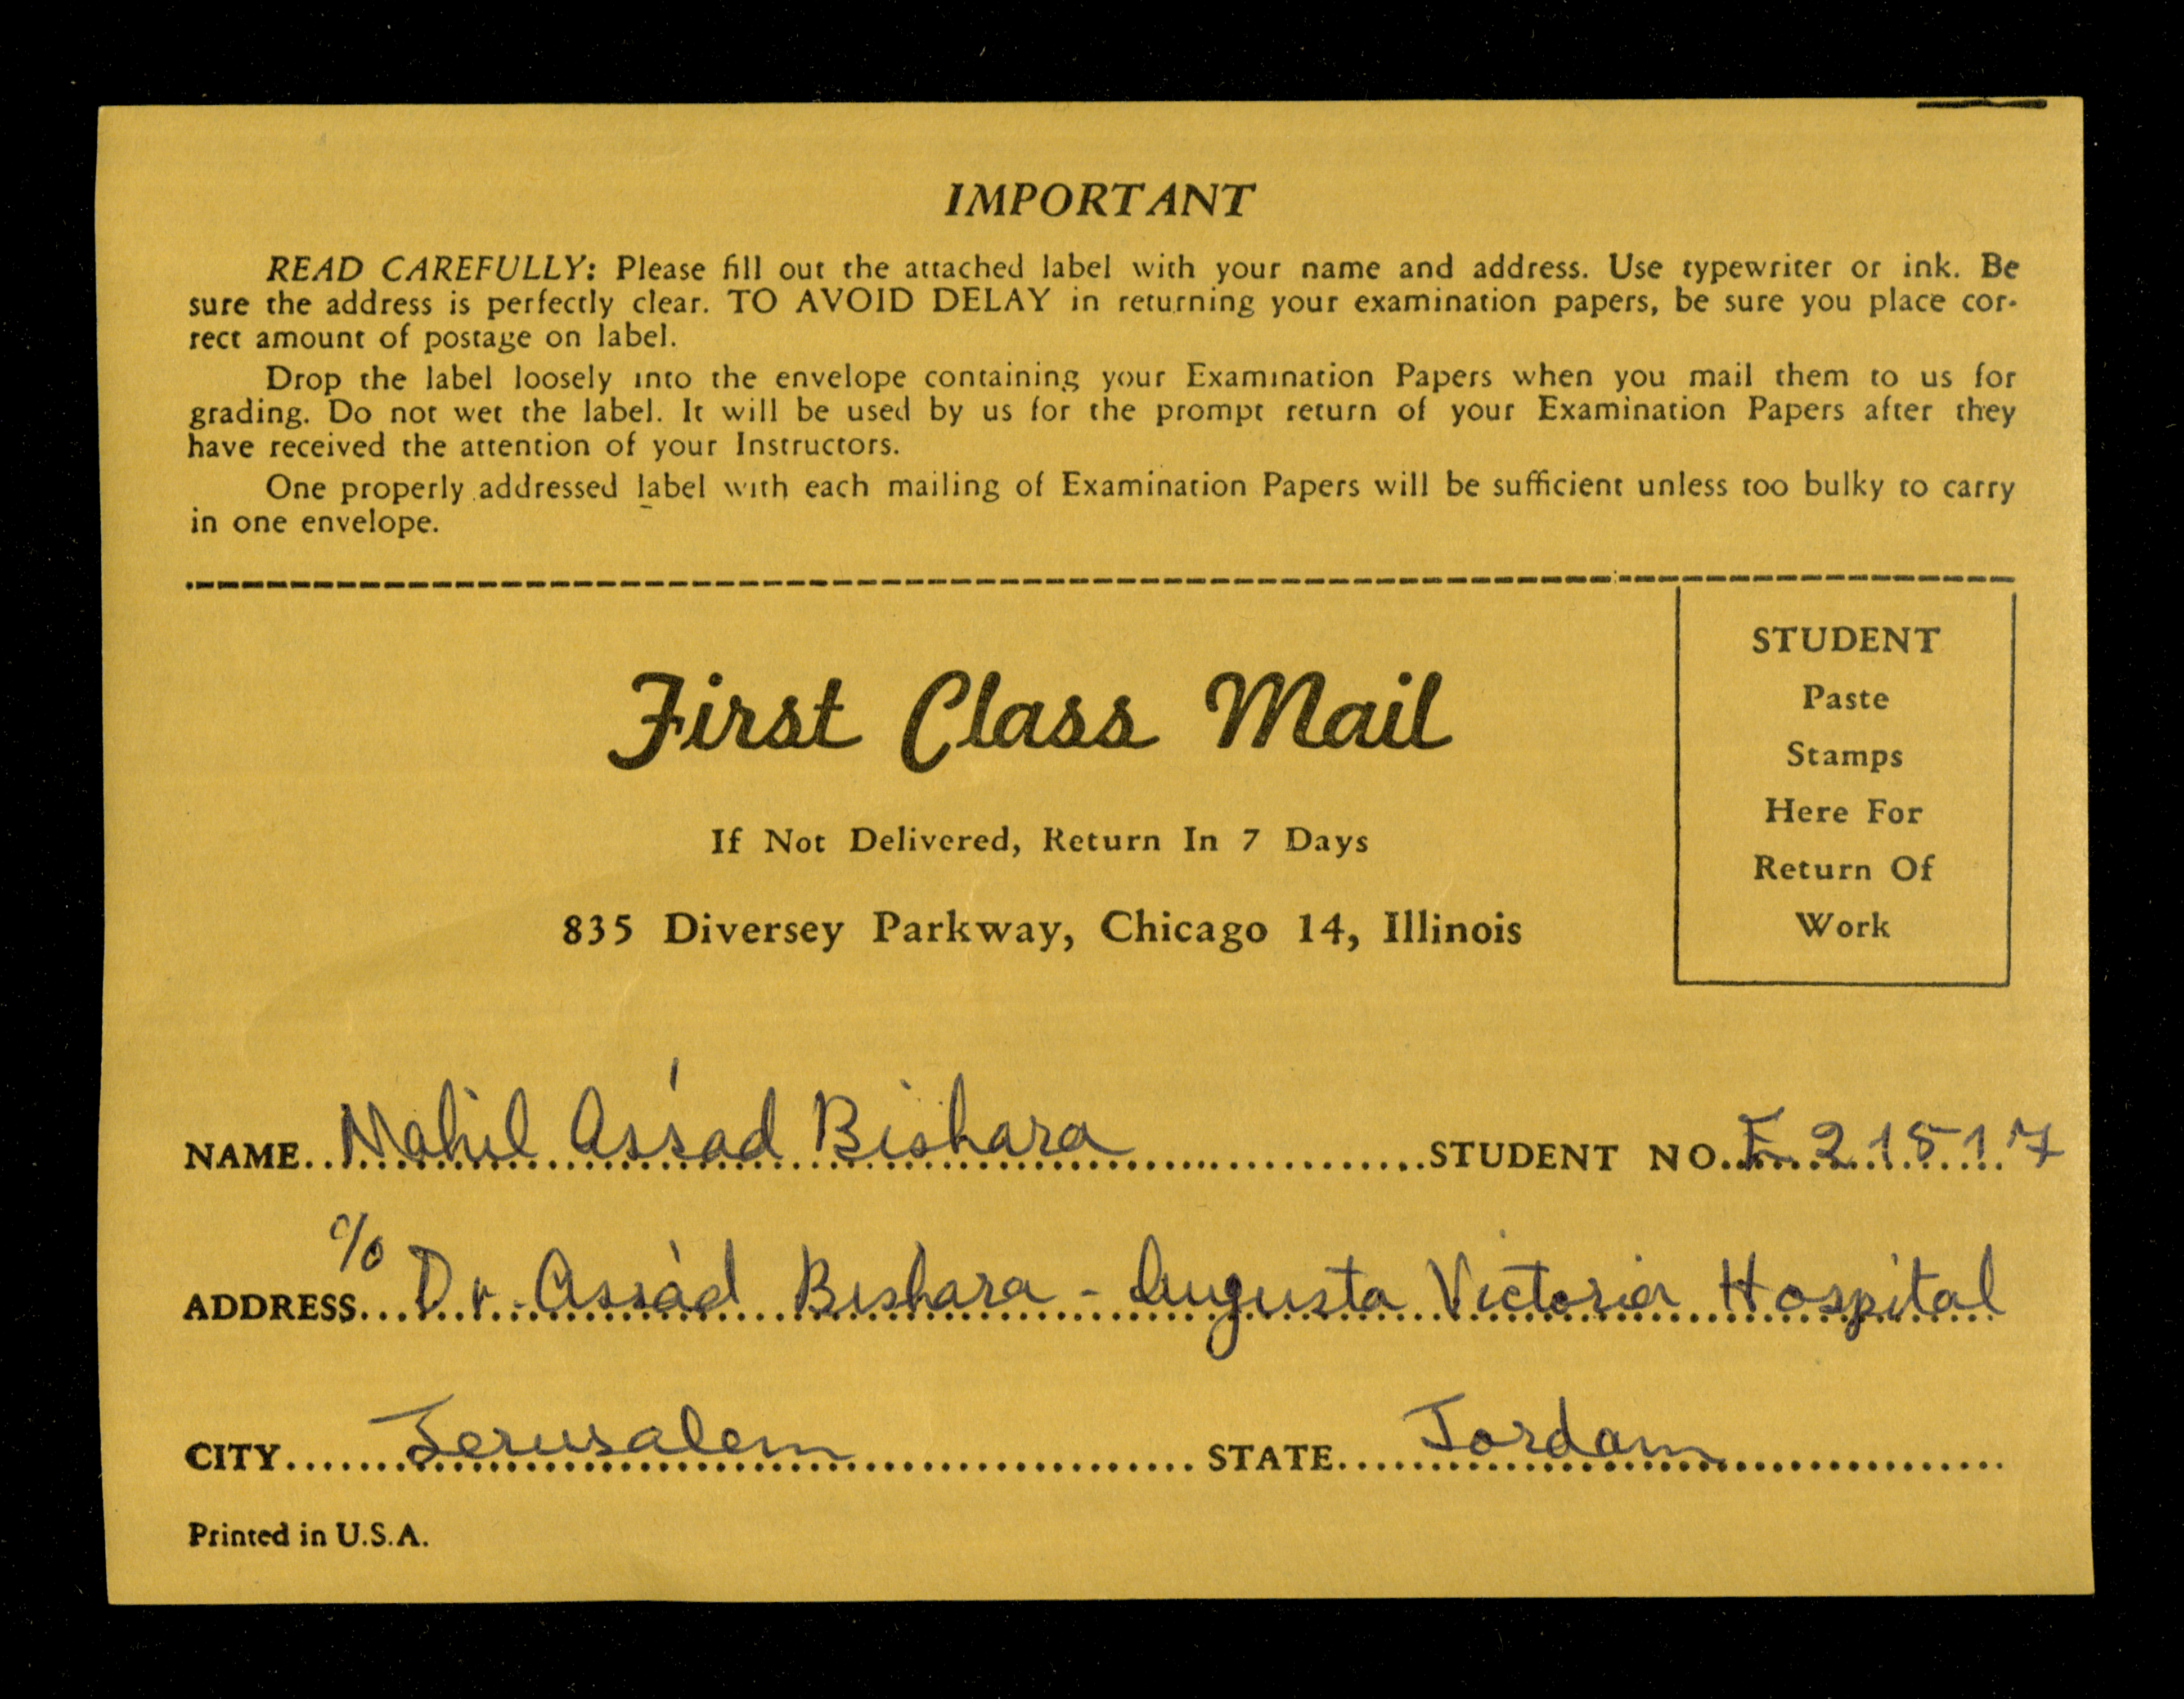 IMPORTANT
READ CAREFULLY: Please fill out the attached label with your name and address. Use typewriter or ink. Be
sure the address is perfectly clear. TO AVOID DELAY in returning your examination papers, be sure you place cor-
rect amount of postage on label.
Drop the label loosely into the envelope containing your Examination Papers when you mail them to us for
grading. Do not wet the label. It will be used by us for the prompt return of your Examination Papers after they
have received the attention of your Instructors.
One properly addressed label with each mailing of Examination Papers will be sufficient unless too bulky to carry
in one envelope.
First Class Mail
If Not Delivered, Return In 7 Days
835 Diversey Parkway, Chicago 14, Illinois
STUDENT
Paste
Stamps
Here For
Return Of
Work
NAME Nahil As'sad Bishara STUDENT NO. E 21517
ADDRESS c/o Dr. Assa'd Bishara - Augusta Victoria Hospital
CITY Jerusalem STATE Jordan
Printed in U.S.A.